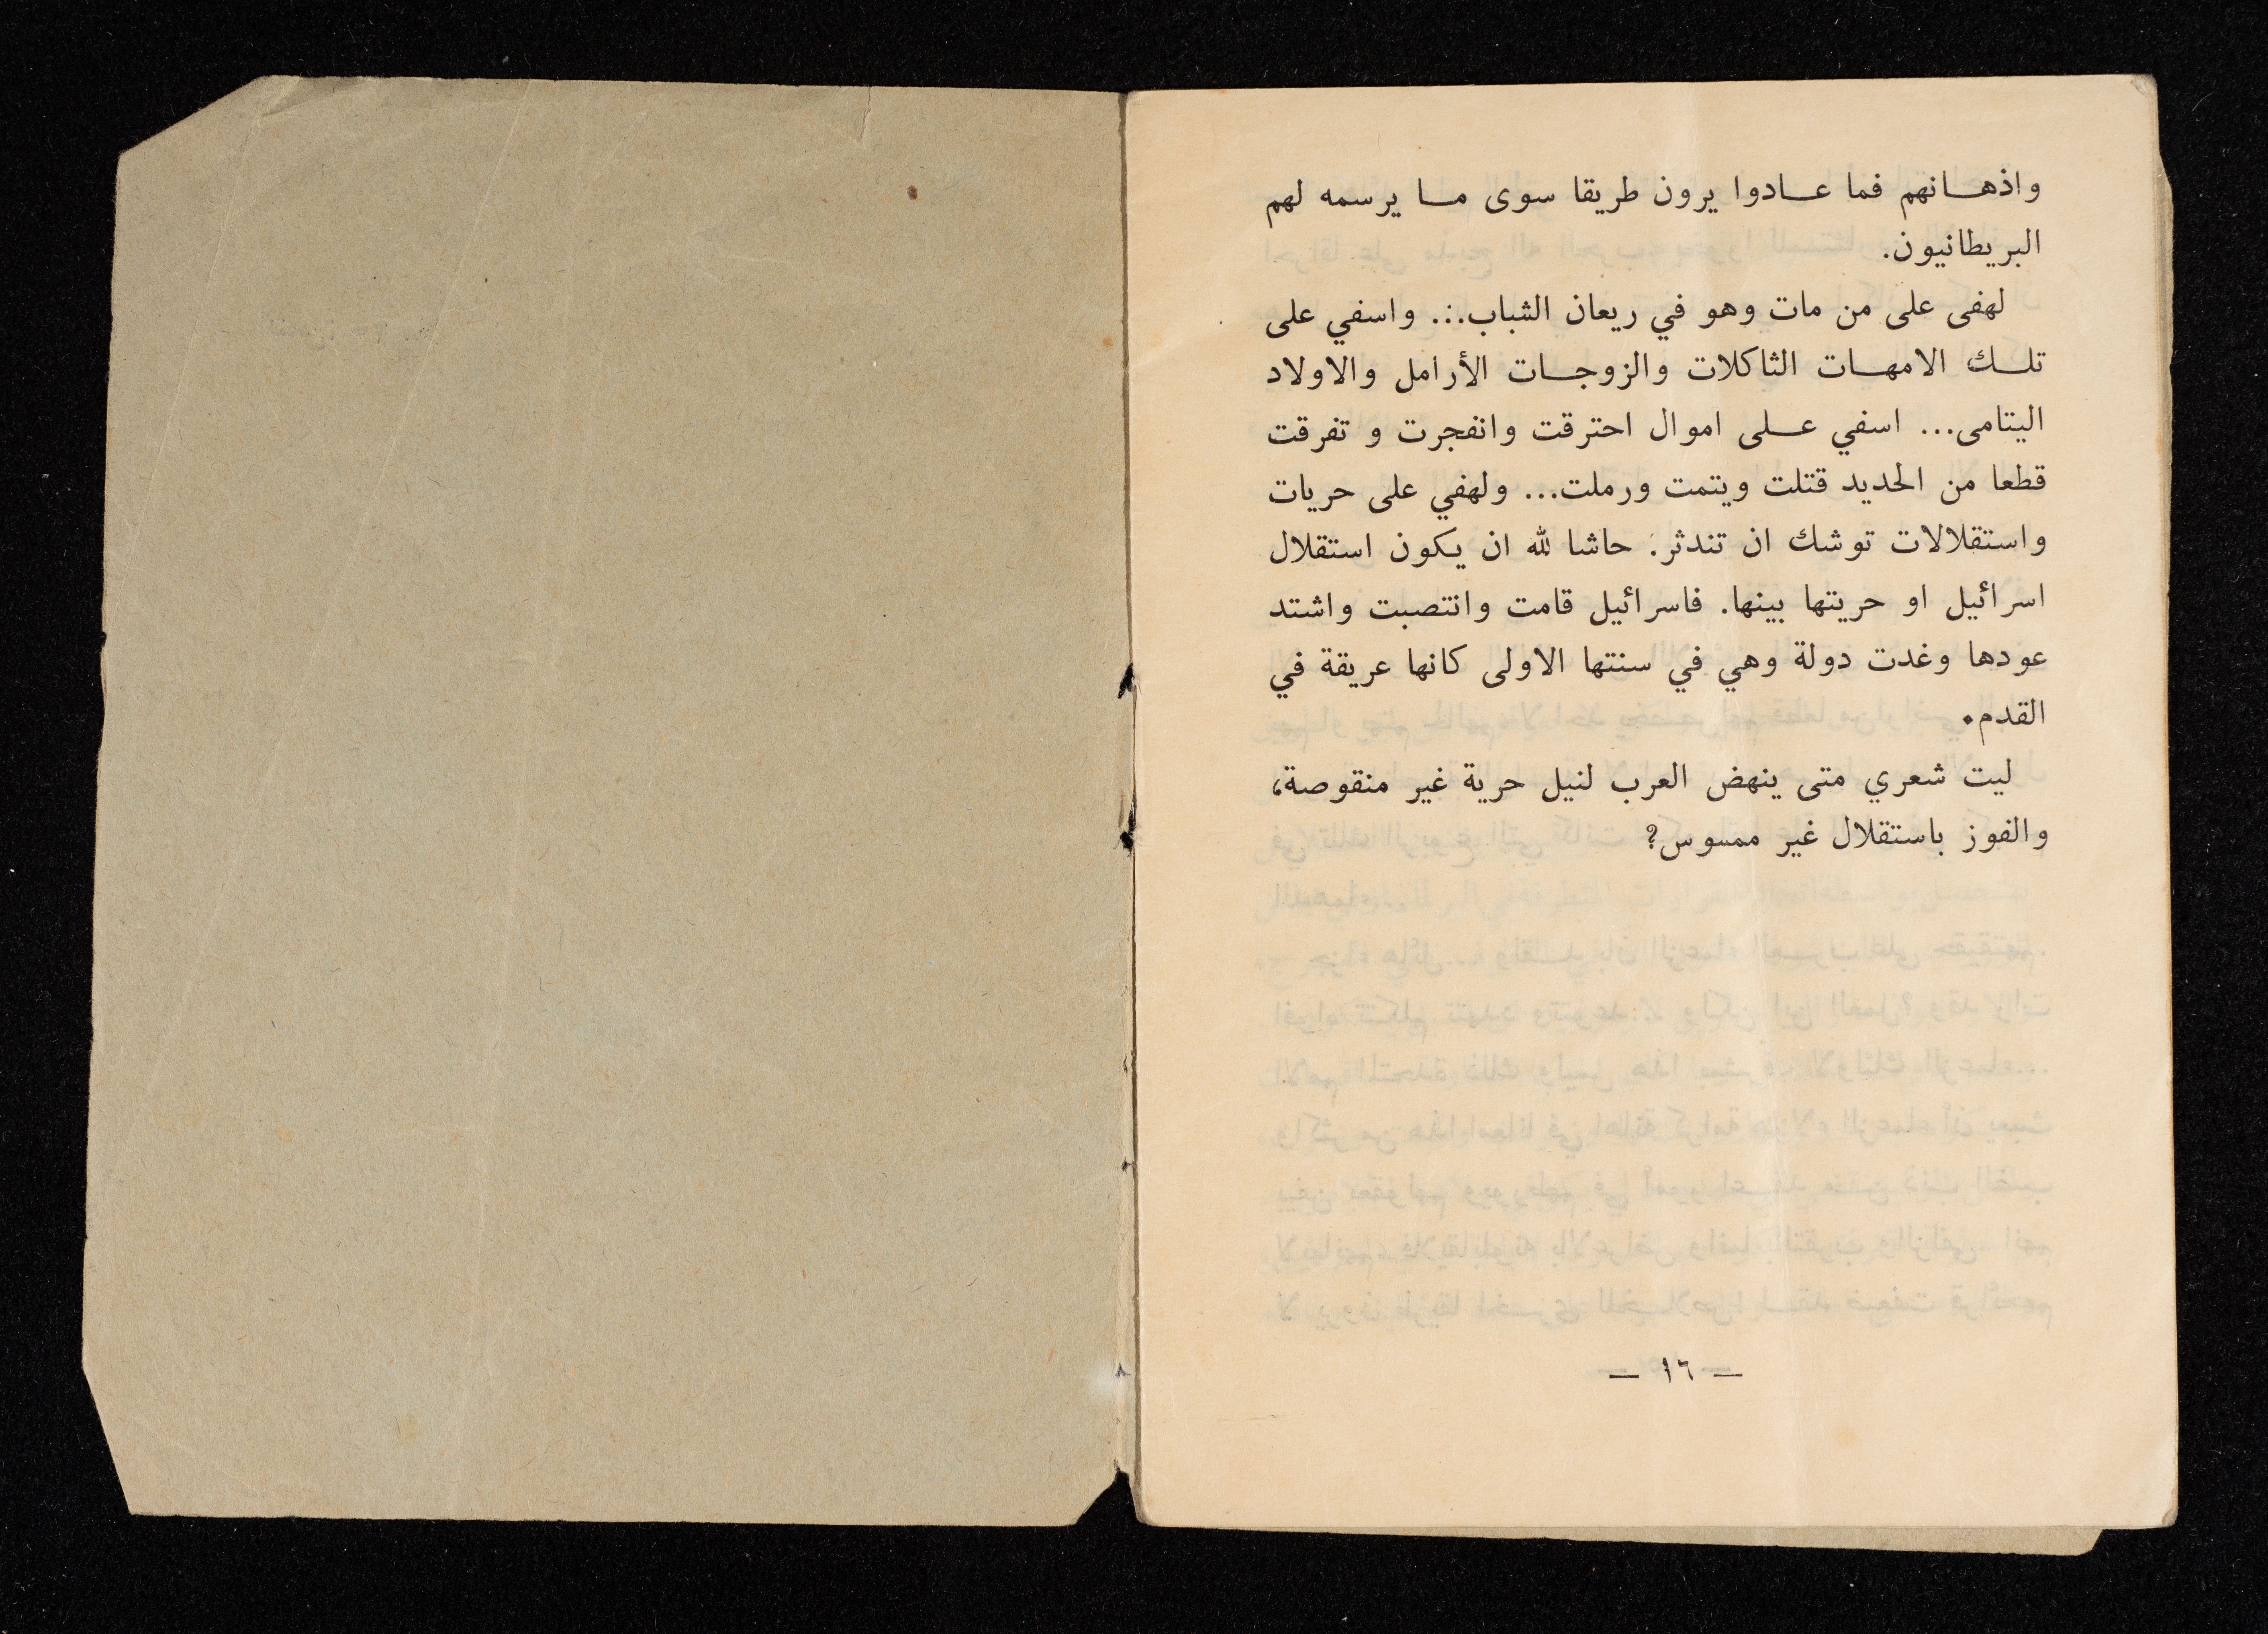 واذهانهم فما عادوا يرون طريقا سوى ما يرسمه لهم
البريطانيون.
لهفى على من مات وهو في ريعان الشباب... واسفي على
تلك الامهات الثاكلات والزوجات الأرامل والاولاد
اليتامى... اسفي على اموال احترقت وانفجرت و تفرقت
قطعا من الحديد قتلت ويتمت ورملت... ولهفي على حريات
واستقلالات توشك ان تندثر. حاشا لله ان يكون استقلال
اسرائيل او حريتها بينها. فاسرائيل قامت وانتصبت واشتد
عودها وغدت دولة وهي في سنتها الاولى كانها عريقة في
القدم.
ليت شعري متى ينهض العرب لنيل حرية غير منقوصة،
والفوز باستقلال غير ممسوس؟
— ١٦ —